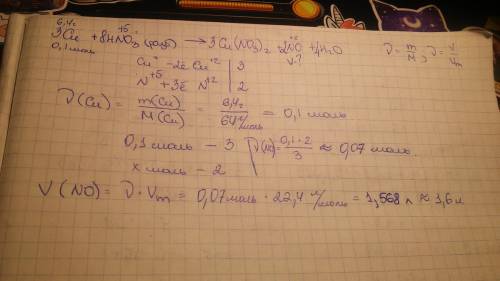 6,4г
3Cu + 8HNO₃ (разб) → 3Cu(NO₃)₂ + 2NO + 4H₂O
+5 +2
0,1 моль V-?
ν = m/M; ν = V/Vm
Cu⁰ -2ē Cu⁺² | 3
N⁺⁵ +3ē N⁺² | 2
ν(Cu) = m(Cu)/M(Cu) = 6,4г/64г/моль = 0,1 моль
0,1 моль - 3 ν(NO) = 0,1·2/3 ≈ 0,07 моль.
x моль - 2
V(NO) = ν · Vm = 0,07 моль · 22,4 л/моль = 1,568 л ≈ 1,6 л